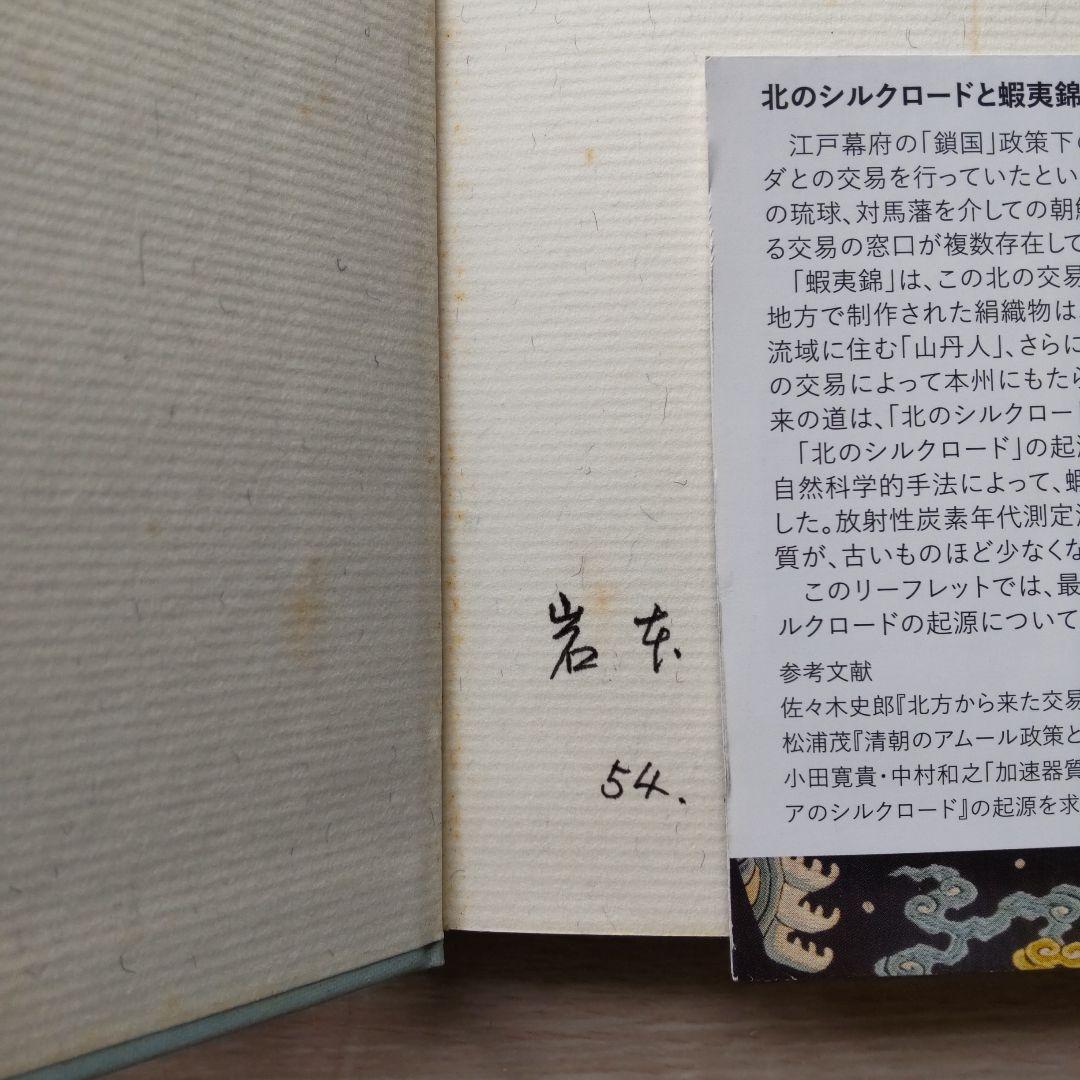 北のシルクロードと蝦夷錦
江戸幕府の「鎖国」政策下の
ダとの交易を行っていたとい
の琉球、対馬藩を介しての朝鮮
る交易の窓口が複数存在して
「蝦夷錦」は、この北の交易
地方で制作された絹織物は
流域に住む「山丹人」、さらに
の交易によって本州にもたら
来の道は、「北のシルクロード
「北のシルクロード」の起源
自然科学的手法によって、蝦
した。放射性炭素年代測定法
質が、古いものほど少なくな
このリーフレットでは、最
ルクロードの起源について
参考文献
佐々木史郎『北方から来た交易
松浦茂『清朝のアムール政策と
小田寛貴・中村和之「加速器質
アのシルクロード』の起源を求
岩本.
54.